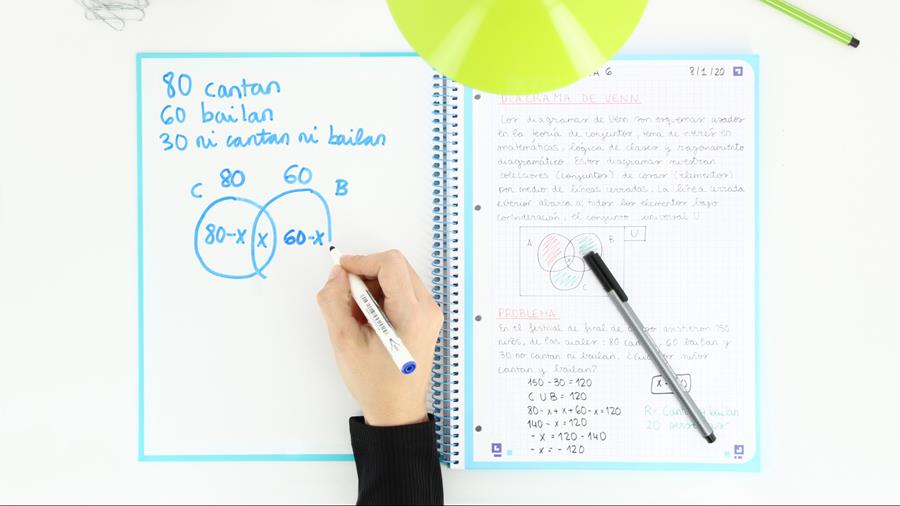 80 cantan
60 bailan
30 ni cantan ni bailan
80 60
C B
80-x x 60-x
6 8/1/20
DIAGRAMA DE VENN
Los diagramas de Venn son esquemas usados
en la teoría de conjuntos, tema de interés en
matemáticas, lógica de clases y razonamiento
diagramático. Estos diagramas muestran
colecciones (conjuntos) de cosas (elementos)
por medio de líneas cerradas. La línea cerrada
exterior abarca a todos los elementos bajo
consideración, el conjunto universal U.
A B U
C
PROBLEMA
En el festival de final de asistieron 150
niños, de los cuales: 80 60 bailan y
30 no cantan ni bailan. niños
cantan y bailan?
150-30=120
C U B = 120
80-x+x+60-x=120
140-x=120
-x=120-140
-x=-120
R= bailan
20